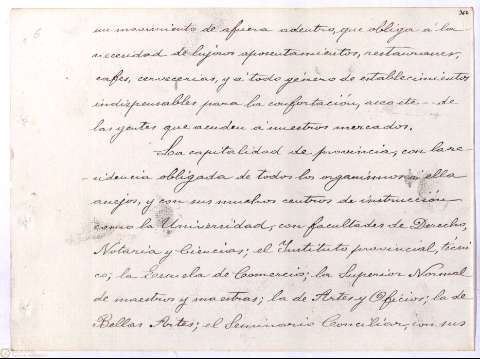 un movimiento de afuera adentro, que obliga á la
necesidad de lujosos aposentamientos, restauranes,
cafés, cervecerias, y á todo género de establecimientos
indispensables para la confortación, aseo etc -- de
las gentes que acuden á nuestros mercados.
La capitalidad de provincia, con la re-
-sidencia obligada de todos los organismos á ella
anejos, y con sus muchos centros de instrucción
como la Universidad, con facultades de Derecho,
Notaria y Ciencias; el Instituto provincial, técni-
co; la Escuela de Comercio; la Superior Normal
de maestros y maestras; la de Artes y Oficios; la de
Bellas Artes; el Seminario Conciliar, con sus